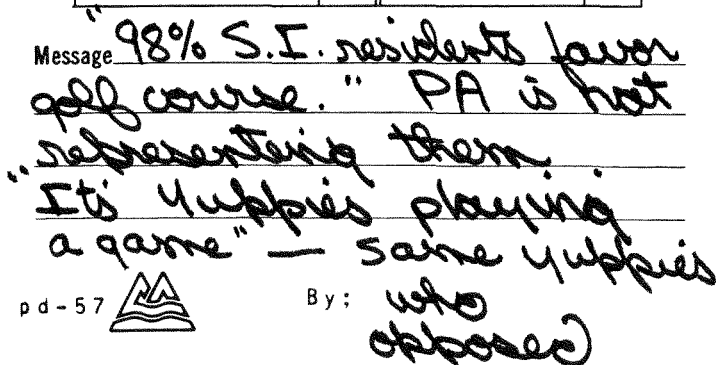 Message "98% S.I. residents favor
golf course." PA is not
representing them
"It's yuppies playing
a game" — same yuppies
pd-57 By: who
opposed